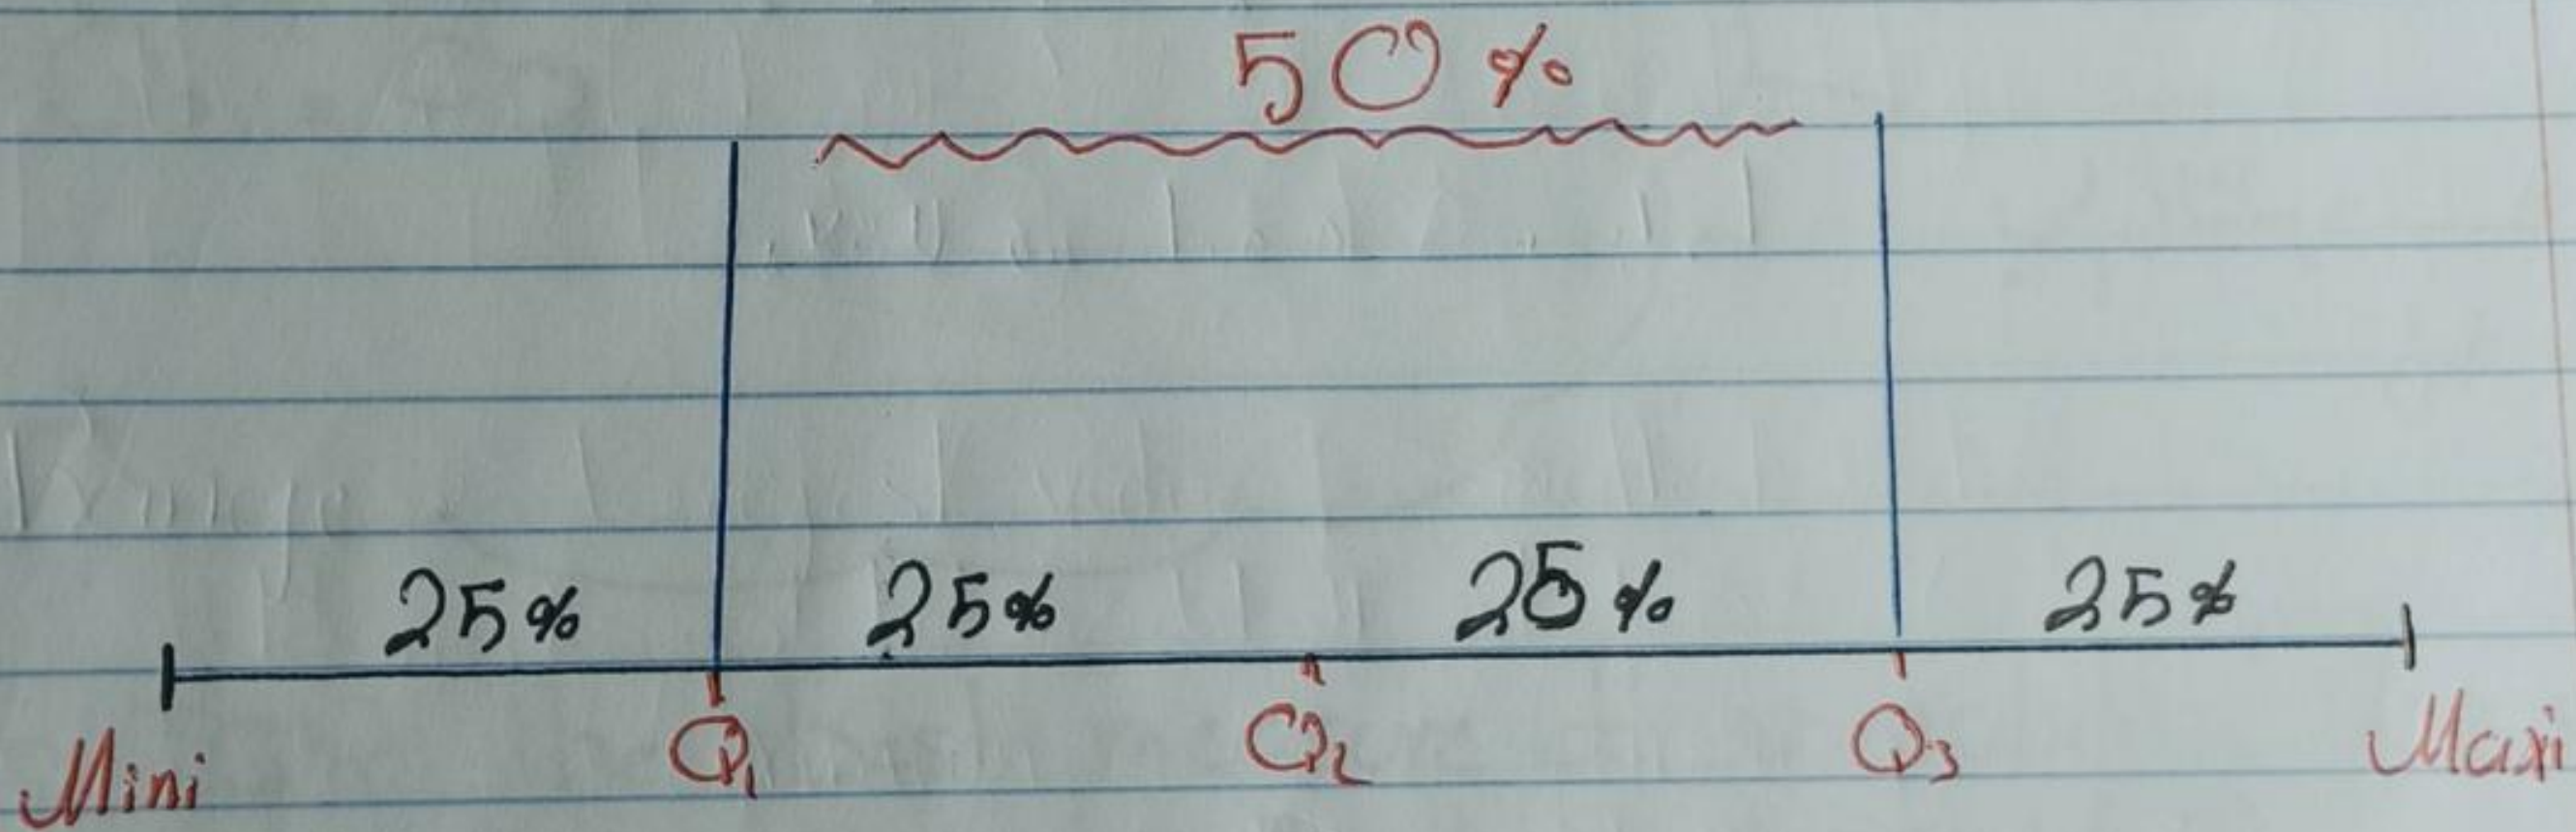 50 %
25% 25% 25% 25%
Mini Q1 Q2 Q3 Maxi